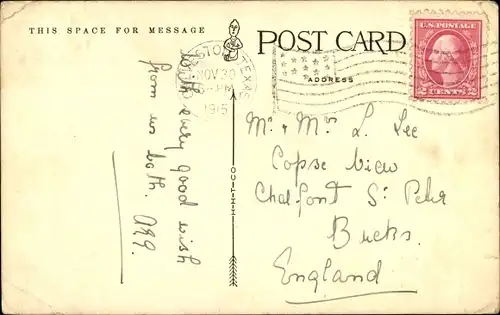 THIS SPACE FOR MESSAGE
POST CARD
ADDRESS
U.S. POSTAGE
2 CENTS 2
TEXAS
NOV 30
PM
1915
with every good wish
from us both.
Mr & Mrs L. Lee
Copse View
Chalfont St Peter
Bucks.
England